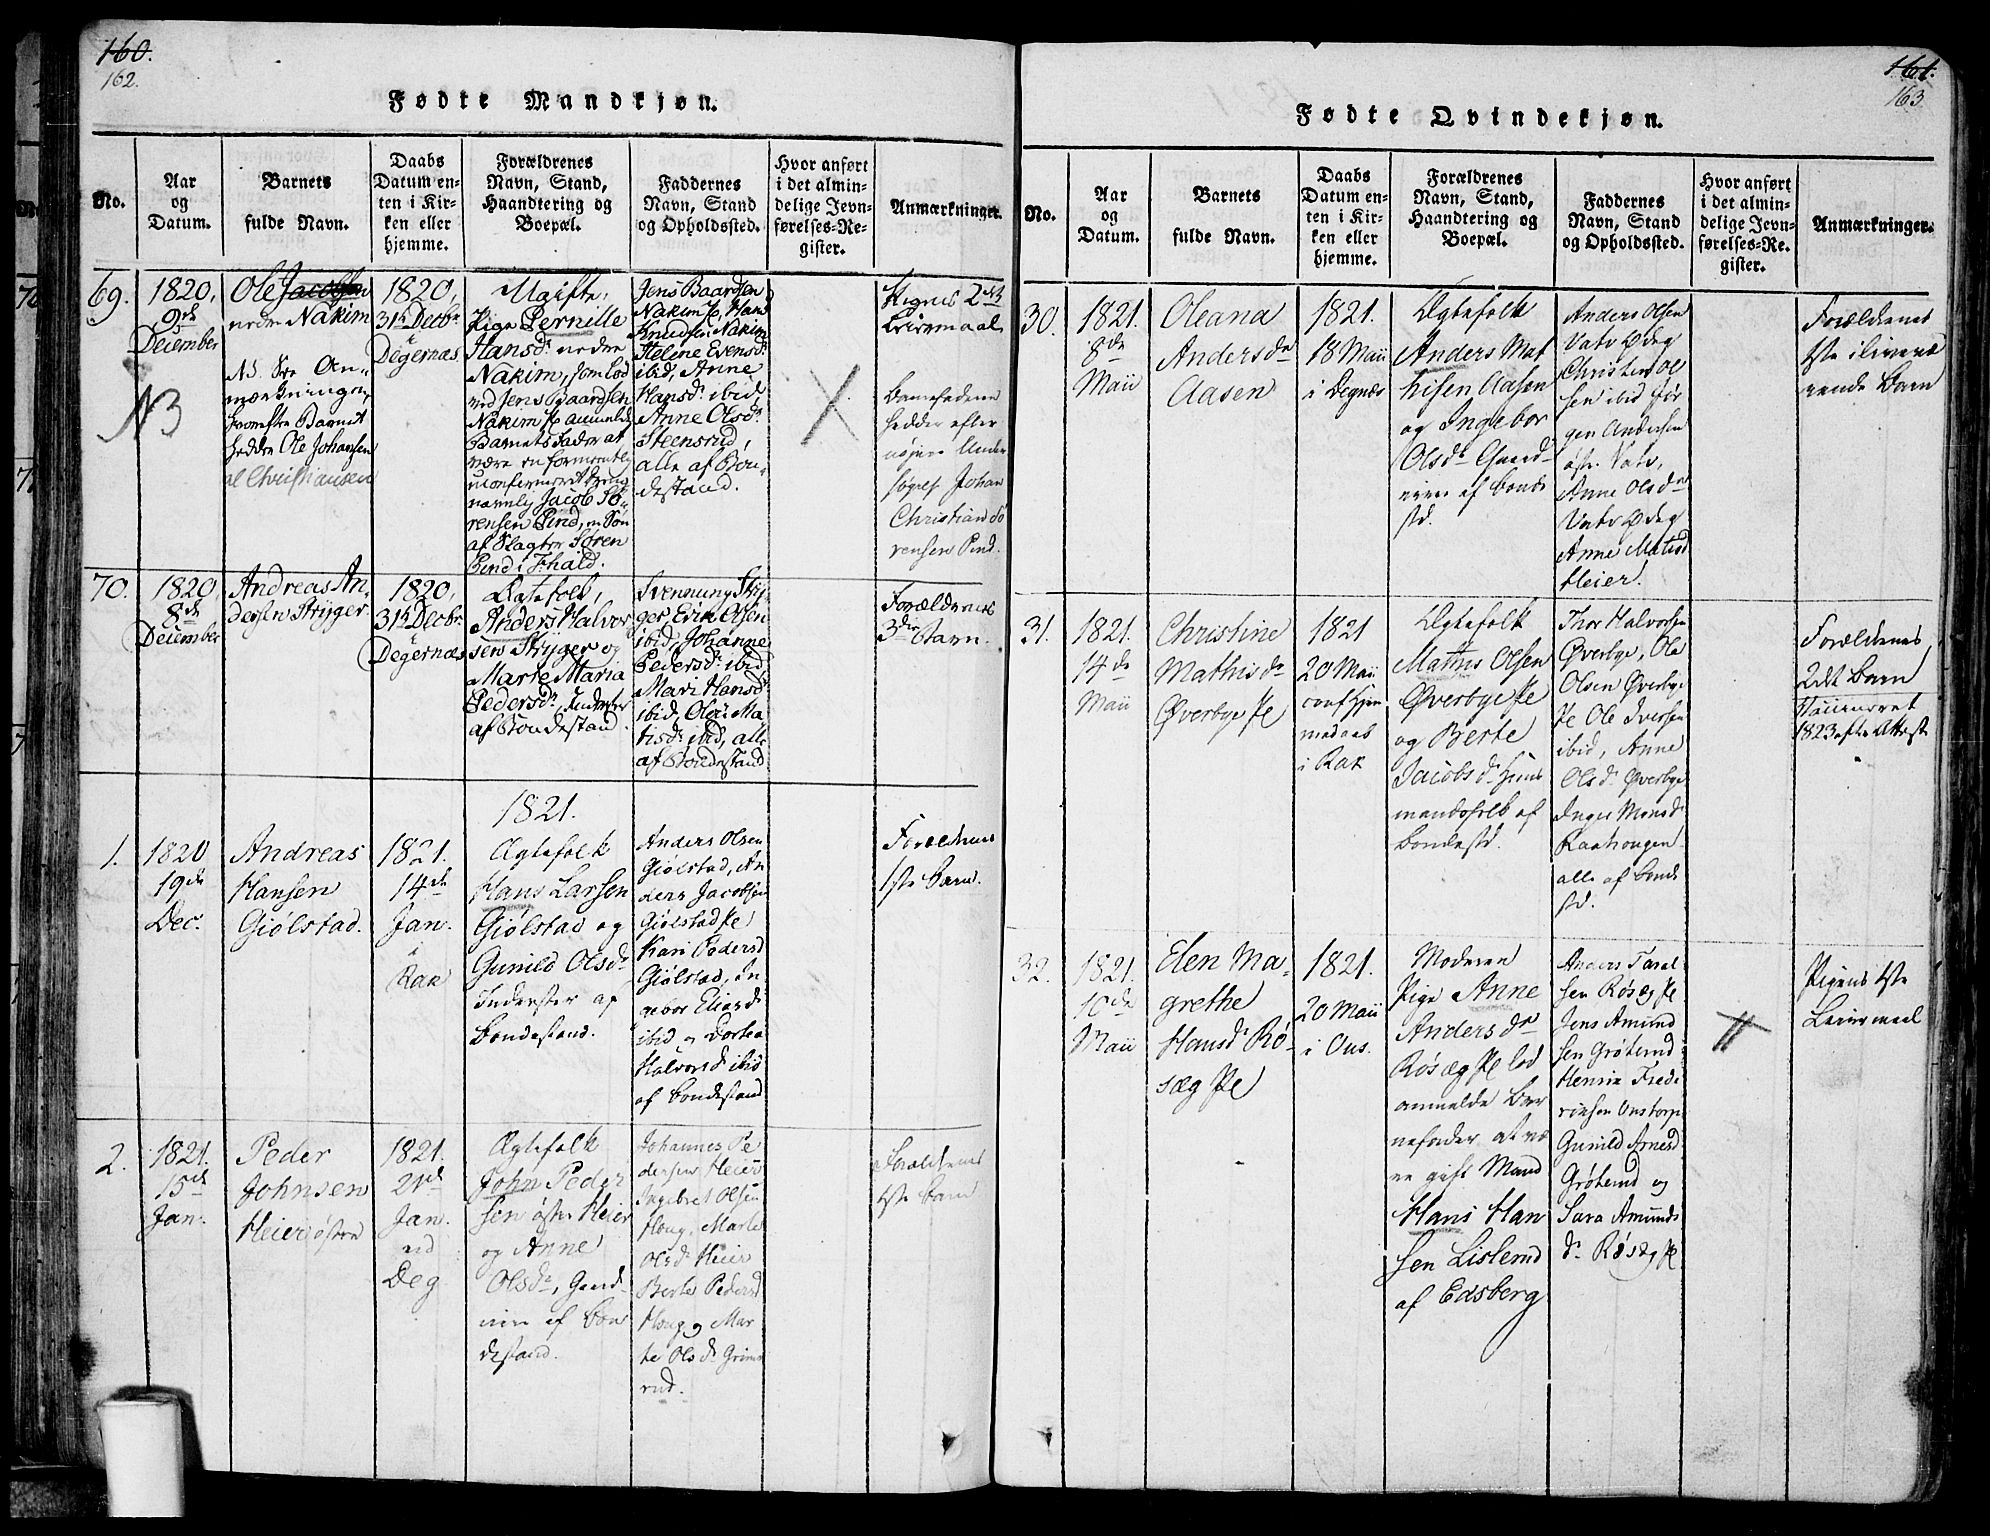 160.
162.
Fødte Mandkjøn.
No.
Aar
og
Datum.
Barnets
fulde Navn.
Daabs
Datum en-
ten i Kir-
ken eller
hjemme.
Forældrenes
Navn, Stand,
Haandtering og
Boepæl.
Faddernes
Navn, Stand
og Opholdssted.
Hvor anført
i det almin-
delige Jevn-
førelses-Re-
gister.
Anmærkninger.
69.
1820,
9de
December
Ole Jacobsen
nedre Nakim
NB. See An-
mærkningen,
hvorefter Barnet
hedder Ole Johansen
el Christiansen
1820,
31te Decbr
i
Degernæs
Ugifte,
Pige Pernille
Hansdr nedre
Nakim, som lod
ved Jens Baardsen
Nakim anmelde
Barnets Fader at
være en formentlig
uconfirmeret Dreng
navnlig Jacob Sø-
rensen Pind, en Søn
af Slagter Søren
Pind i Fhald.
Jens Baardsen
Nakim, Hans
Knudsen Nakim
Helene Evensdr
ibid, Anne
Hansdr ibid
Anne Olsdr
Steensrud,
alle af Bon-
destand.
Pigens 2det
Leiermaal
Barnefaderen
hedder efter
nøiere Under
søgels Johan
Christian Sø
rensen Pind.
70.
1820
8de
December
Andreas An-
dersen Stryger
1820,
31te Decbr
i
Degernæs
Ægtefolk,
Anders Halvor
sen Stryger og
Marte Maria
Pedersdr, Inderster
af Bondestand.
Svennung Stry
ger, Erik Olsen
ibid, Johanne
Pedersdr ibid
Mari Hansdr
ibid, Oleu Ma
tisdr ibid, alle
af Bondestand
Forældrenes
3die Barn.
1821.
1.
1820
19de
Dec.
Andreas
Hansen
Giølstad.
1821.
14de
Jan.
i
Rak
Ægtefolk
Hans Larsen
Giølstad og
Gunild Olsdr
Inderster af
Bondestand.
Anders Olsen
Giølstad, An
ders Jacobsen
Giølstad Pe
Kari Pedersd
Giølstad, In
gebor Eliasd
ibid og Dorthe
Halvorsd ibid
af Bondestand
Forældrenes
1ste Barn.
2.
1821.
15de
Jan.
Peder
Johnsen
Heier østre
1821.
21de
Jan.
ved
Deg
Ægtefolk
John Peder
sen østre Heier
og Anne
Olsdr, Gaard-
men af Bon
destand.
Johannes Pe
dersen Heier
Ingebret Olsen
Houg, Marte
Olsdr Heier
Berte Pedersd
Houg og Mar
te Olsdr Grims
rud.
Forældrenes
1ste Barn
161.
163
Fødte Qvindekjøn.
No.
Aar
og
Datum.
Barnets
fulde Navn.
Daabs
Datum en-
ten i Kir-
ken eller
hjemme.
Forældrenes
Navn, Stand,
Haandtering og
Boepæl.
Faddernes
Navn, Stand
og Opholdssted.
Hvor anført
i det almin-
delige Jevn-
førelses-Re-
gister.
Anmærkninger.
30.
1821.
8de
Maii
Oleana
Andersdr
Aasen
1821.
18 Maii
i Degnæs
Ægtefolk
Anders Mat
hisen Aasen
og Ingebor
Olsdr Gaard-
men af Bonde
std.
Anders Olsen
Vatv Ødeg
Christen Ol
sen ibid Jør
gen Andersen
østr. Vatv,
Anne Olsdr
Vatv Ødeg
Anne Matisd
Heier.
Forældrenes
1ste i live væ
rende Barn
31.
1821.
14de
Maii
Christine
Mathisdr
Øverbye Pe
1821
20 Maii
conf hjem
medaab
i Rak
Ægtefolk
Matius Olsen
Øverbye Pe
og Berte
Jacobsdr Huus
mandsfolk af
Bondestd.
Thor Halvorsen
Øverbye, Ole
Olsen Øverbye
Pe Ole Iversen
ibid, Anne
Olsdr Øverbye
Inger Monsdr
alle af Bonde
std.
Forældrenes
2det Barn
1823 efter Attest
32.
1821.
10de
Maii
Elen Ma-
grethe
Hansdr Rø-
sæg Pe
1821.
20 Maii
i Ous.
Moderen
Pige Anne
Andersdr
Røsæg Pe lod
anmelde Bar
nefader at væ
re gift Mand
Hans Han
sen Lislerud
af Edsberg
Anders Taral-
sen Røsæg Pe
Jens Amund
sen Grøterud
Henric Fredr
ichsen Onstorp
Gunild Arnesd
Grøterud og
Sara Amunds
dr Røsæg Pe
Pigens 1ste
Leiermaal